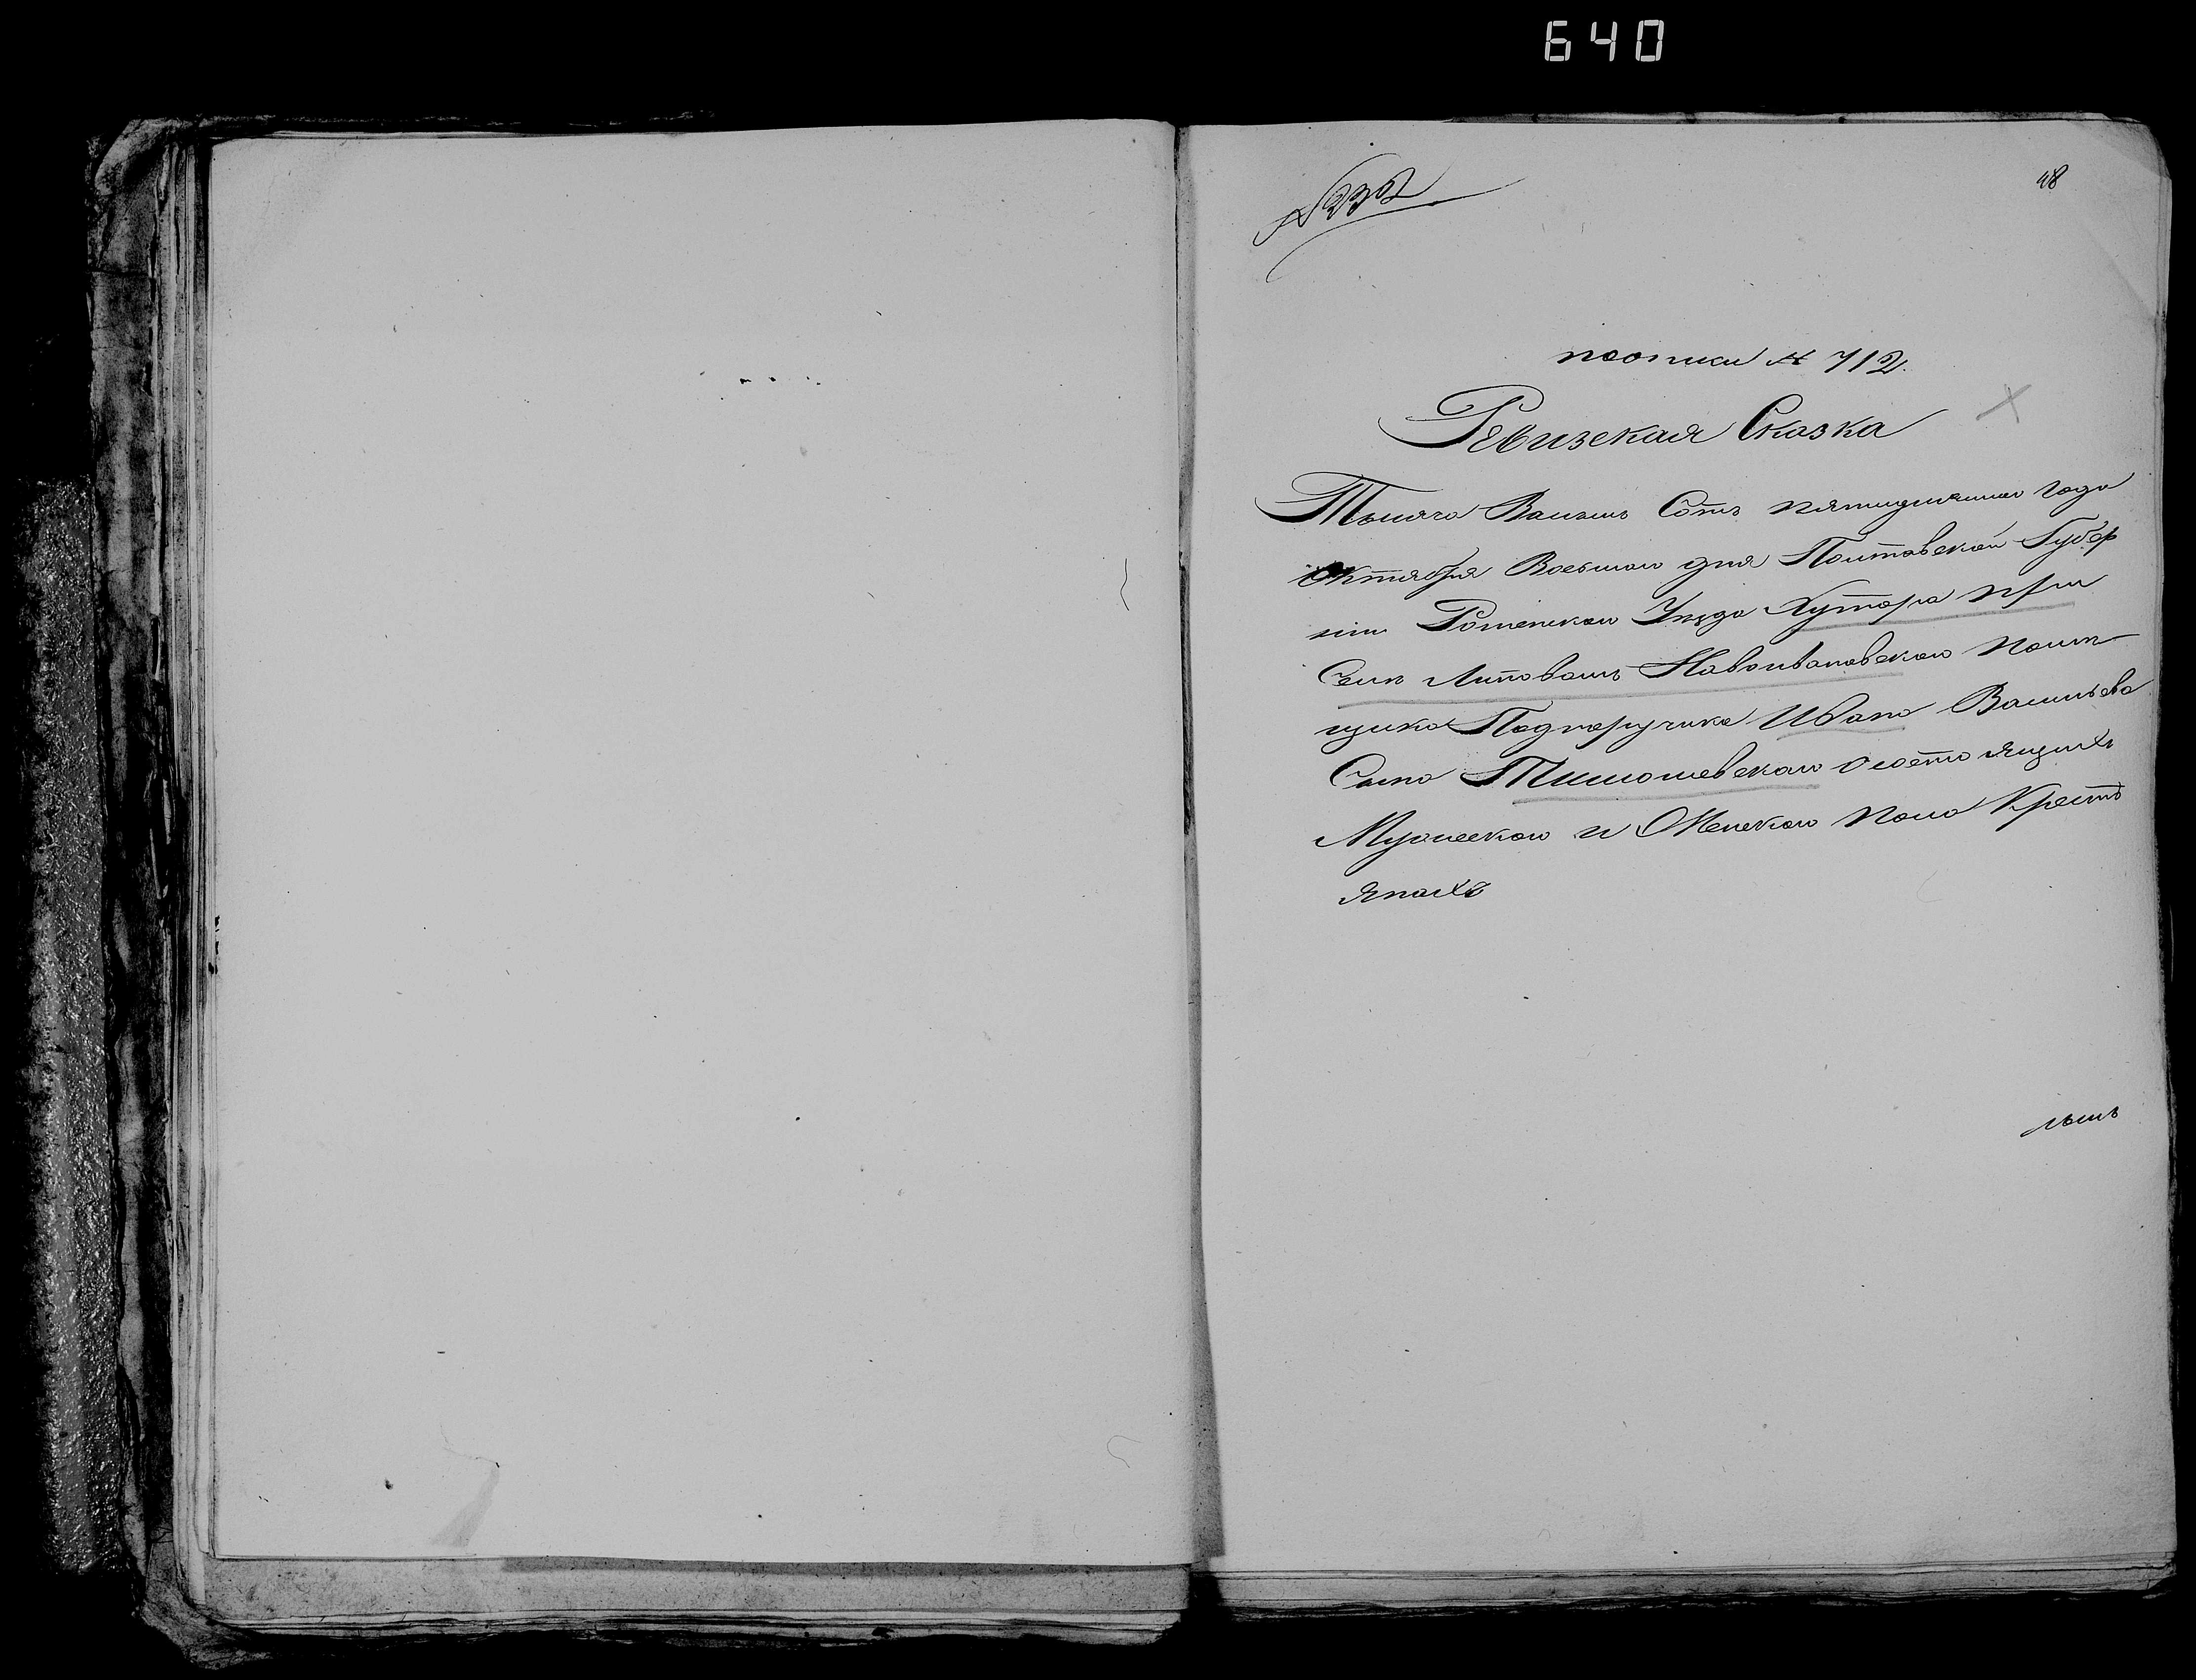 640
48
№ 232
по описи № 712.
Ревизская Сказка
Тысяча Восемь Сотъ пятидесятаго года
Октября Восьмаго дня Полтавской Губер
ніи Роменскаго Уѣзда Хутора при
Селѣ Липовомъ Новоивановскаго помѣ
щика Подпоручика Ивана Васильева
Сына Тимошевскаго о состоящихъ
Мужескаго и Женскаго пола Кресть
янахъ